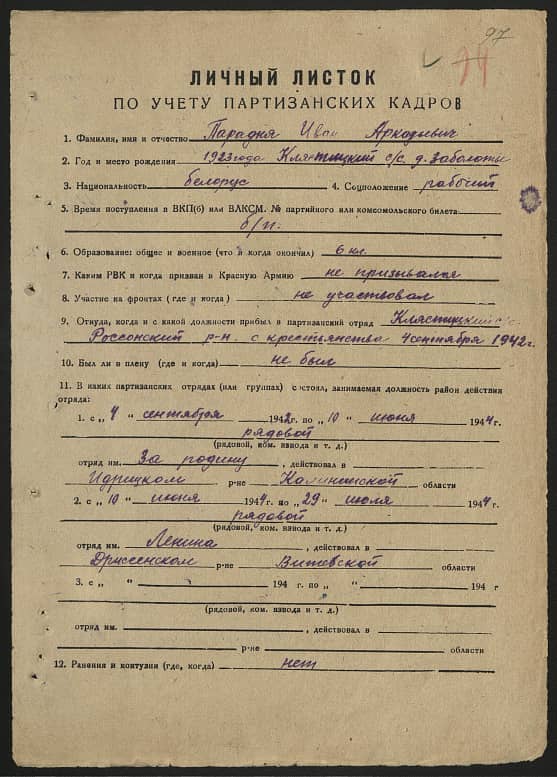 97
94
ЛИЧНЫЙ ЛИСТОК
ПО УЧЕТУ ПАРТИЗАНСКИХ КАДРОВ
1. Фамилия, имя и отчество Парадня Иван Аркадьевич
2. Год и место рождения 1923 года Клястицкий с/с. д. Заболотье
3. Национальность белорус 4. Соцположение рабочий
5. Время поступления в ВКП(б) или ВЛКСМ. № партийного или комсомольского билета
б/п.
6. Образование: общее и военное (что и когда окончил) 6 кл.
7. Каким РВК и когда призван в Красную Армию не призывался
8. Участие на фронтах (где и когда) не участвовал
9. Откуда, когда и с какой должности прибыл в партизанский отряд Клястицкий с/с.
Россонский р-н. с крестьянства 4 сентября 1942 г.
10. Был ли в плену (где и когда) не был
11. В каких партизанских отрядах (или группах) состоял, занимаемая должность район действия
отряда:
1. с „ 4 “ сентября 1942 г. по „ 10 “ июня 1944 г.
рядовой
(рядовой, ком. взвода и т. д.)
отряд им. За родину, действовал в
Идрицком р-не Калининской области
2. с „ 10 “ июня 1944 г. по „ 29 “ июля 1944 г.
рядовой
(рядовой, ком. взвода и т. д.)
отряд им. Ленина, действовал в
Дриссенском р-не Витебской области
3. с „ “ 194 г. по „ “ 194 г
(рядовой, ком. взвода и т. д.)
отряд им. , действовал в
р-не области
12. Ранения и контузии (где, когда) нет